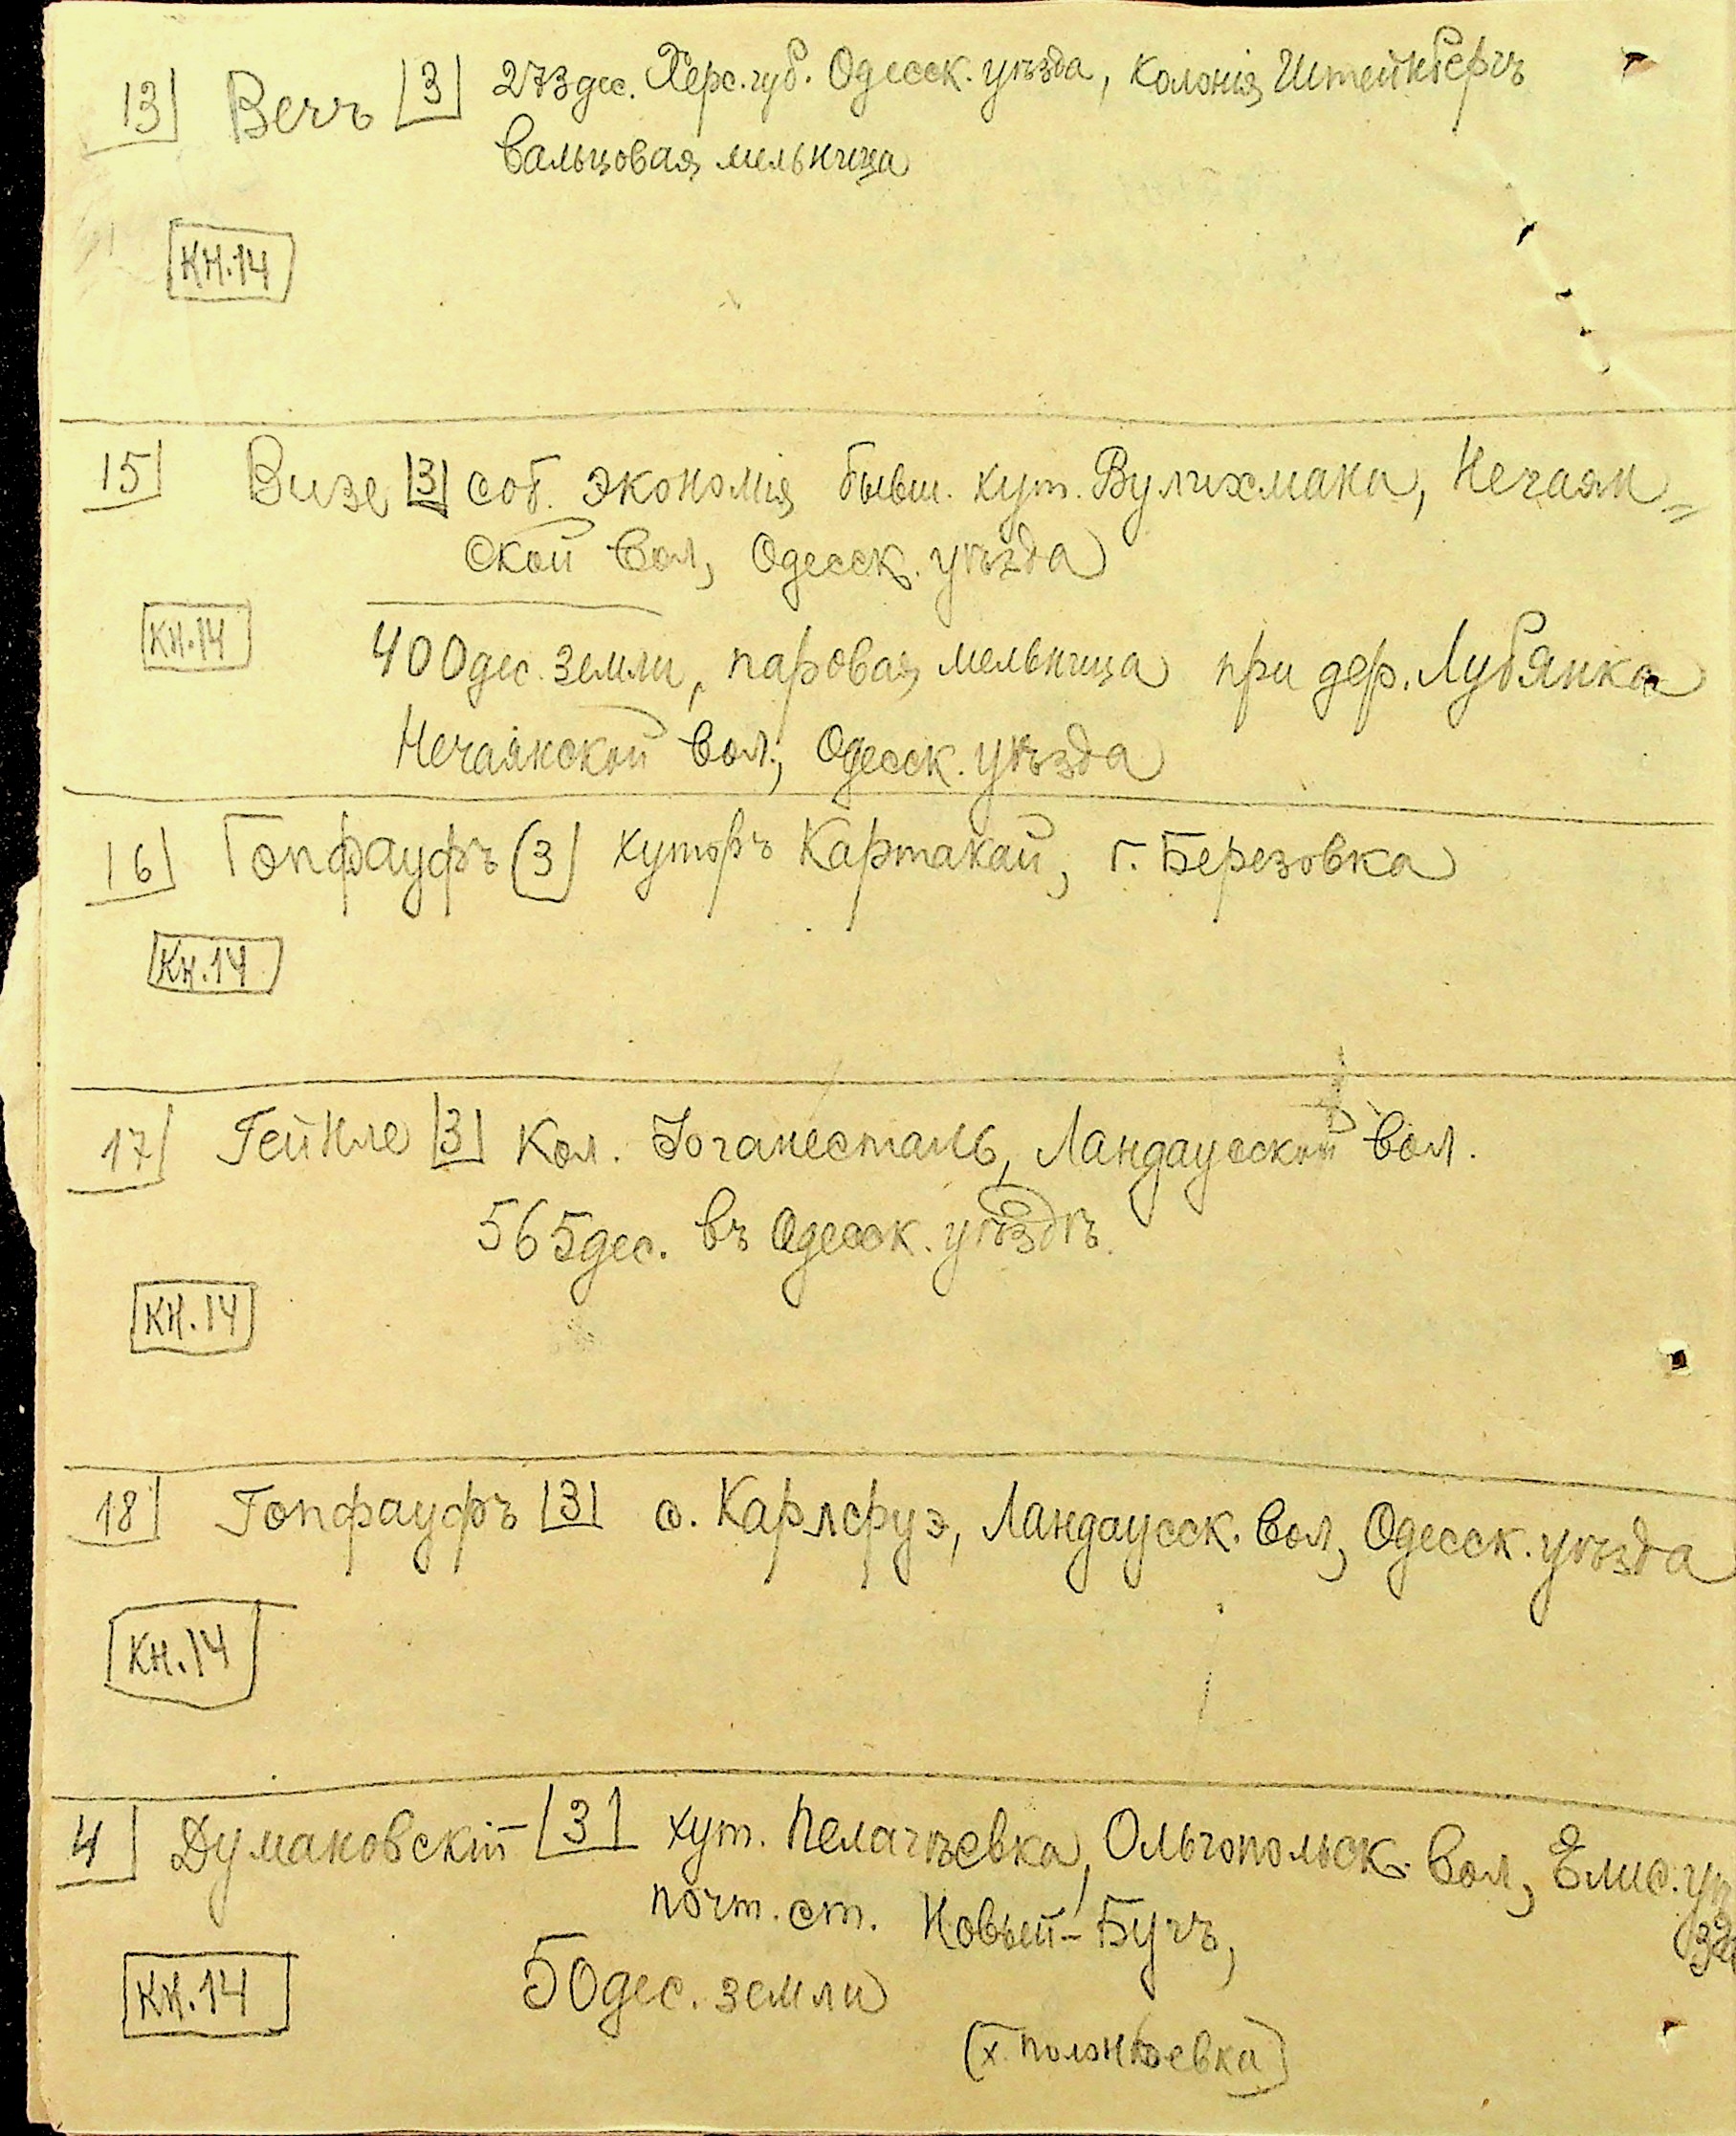 13 Вегъ 3 273 дес. Херс. губ. Одесск. уѣзда, колонія Штейнбергъ
Вальцовая мельница
КН.14
15 Визе 3 соб. экономія бывш. хут. Вулихмана, Нечаян=
ской вол, Одесск. уѣзда
КН.14
400 дес. земли, паровая мельница при дер. Лубянка
Нечаянской вол., Одесск. уѣзда
16 Гопфауфъ 3 хуторъ Картакай, г. Березовка
Кн.14
17 Гейнле 3 Кол. Іоганесталь, Ландаусской вол.
565 дес. въ Одесск. уѣздѣ.
КН.14
18 Гопфауфъ 3 с. Карлсруэ, Ландаусск. вол, Одесск. уѣзда
Кн.14
4 Думановскій 3 хут. Пелагѣевка, Ольгопольск. вол, Елис. уѣ
зда
почт. ст. Новый-Бугъ,
50 дес. земли
КН.14
(х. полонѣевка)